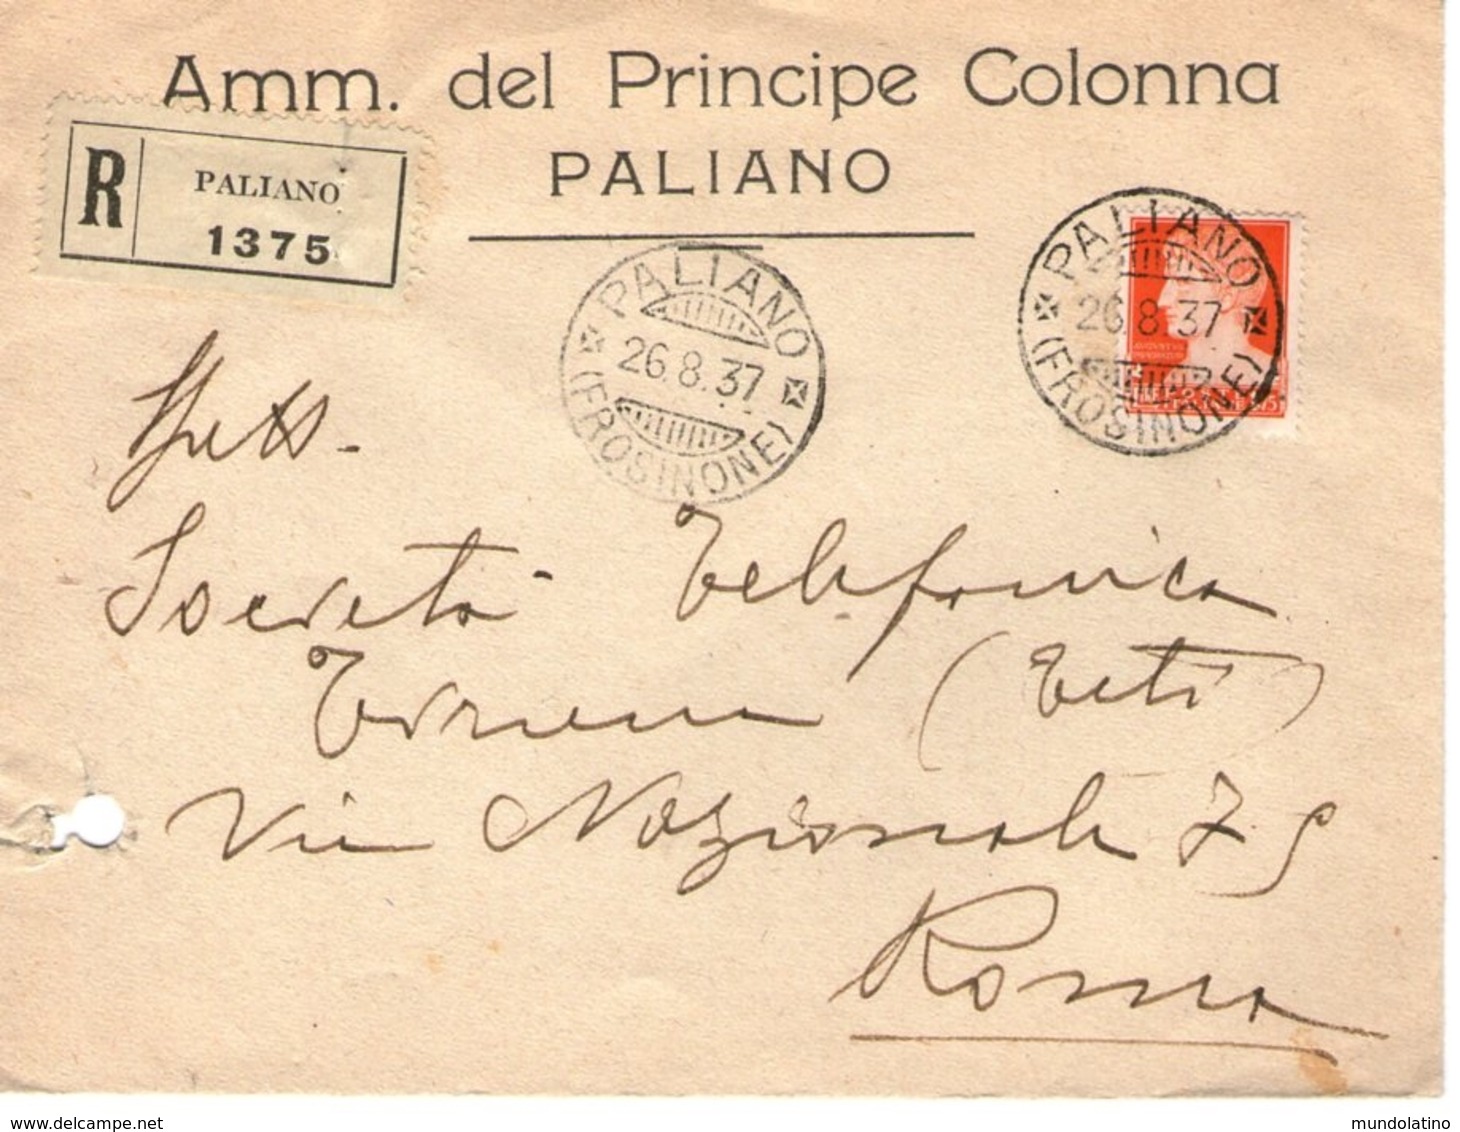 Amm. del Principe Colonna
PALIANO
R PALIANO
1375
PALIANO
26.8.37
(FROSINONE)
PALIANO
26.8.37
(FROSINONE)
Spett.
Società Telefonica
Tirrena (Teti)
Via Nazionale
Roma
www.delcampe.net
mundolatino